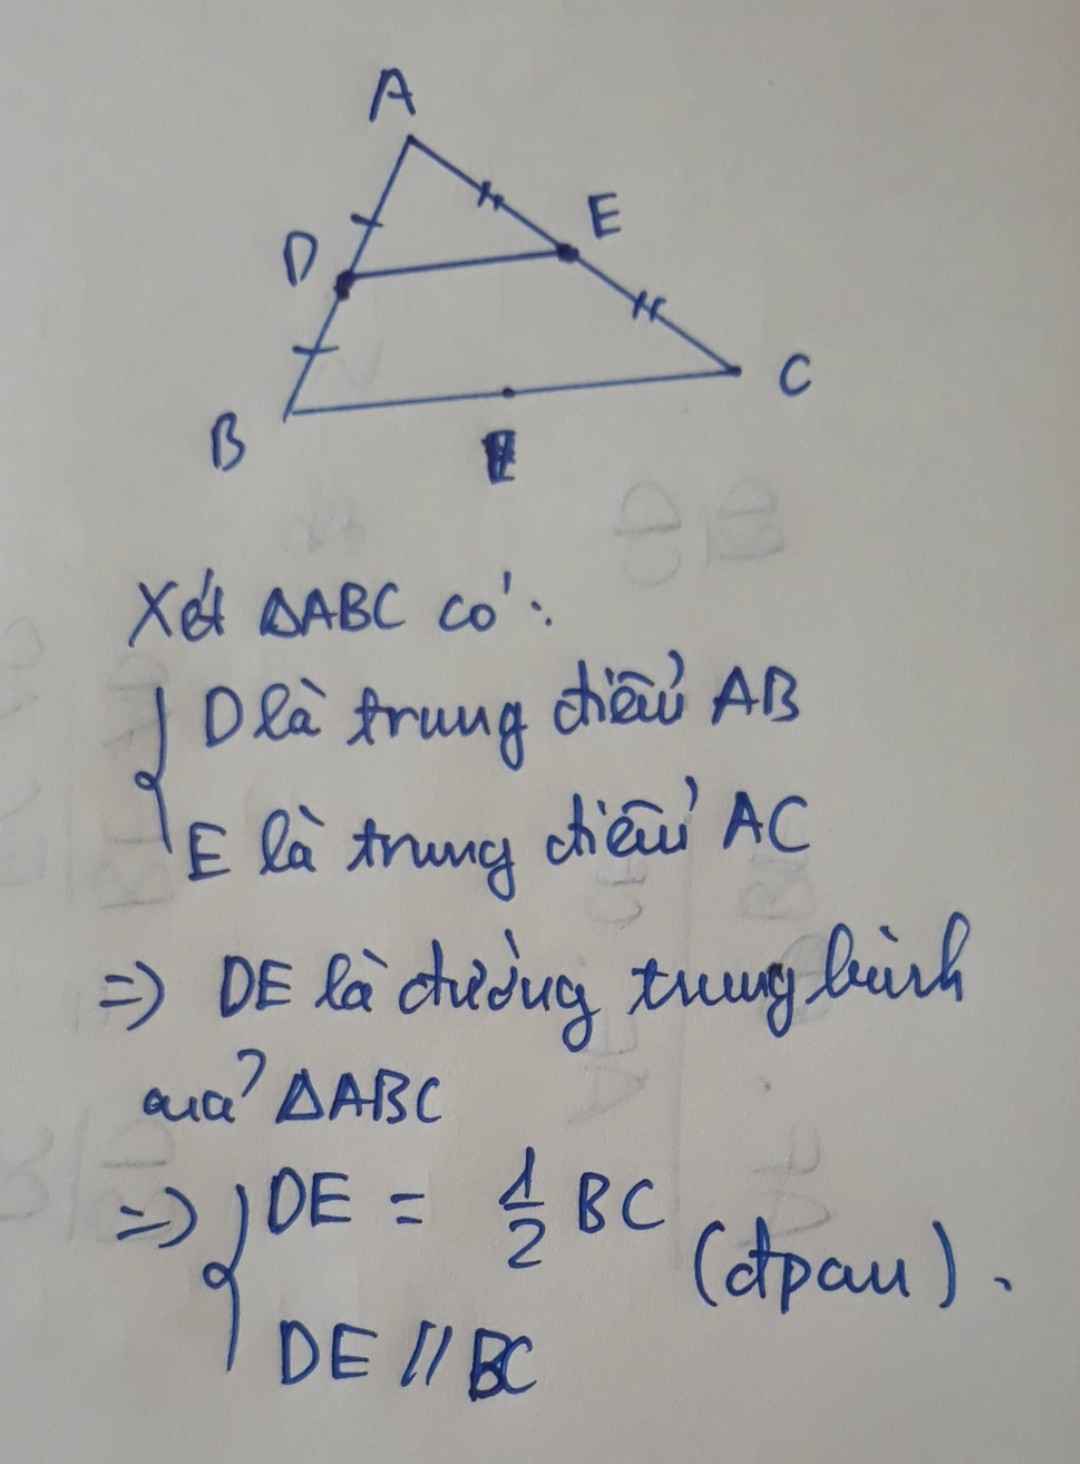 A
D
E
B
C
Xét ΔABC có:
D là trung điểm AB
E là trung điểm AC
=> DE là đường trung bình
của ΔABC
=> DE = 1/2 BC
(đpcm).
DE // BC